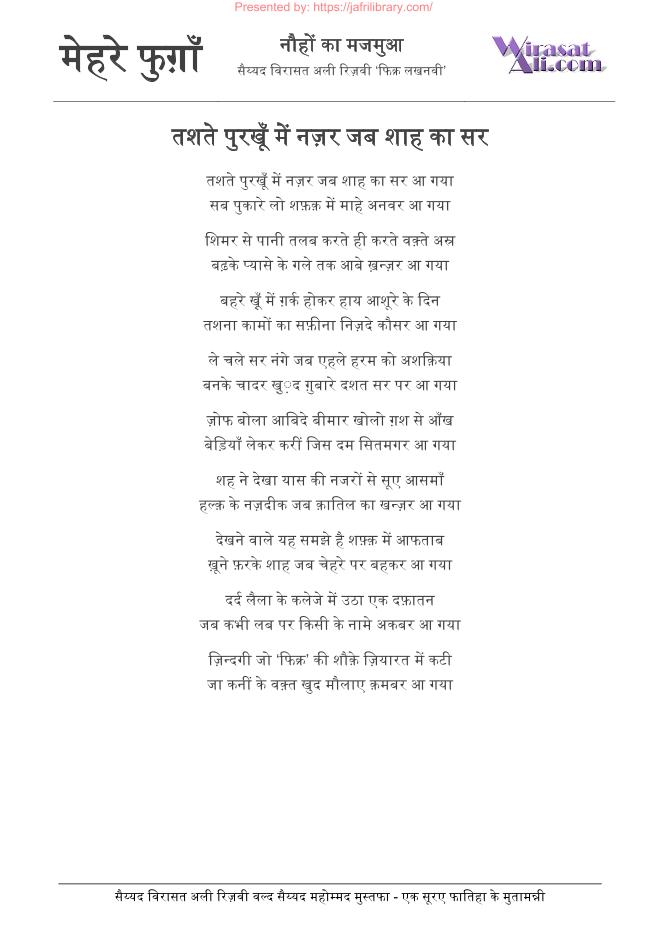 Presented by: https://jafrilibrary.com/
मेहरे फुग़ाँ
नौहों का मजमुआ
सैय्यद विरासत अली रिज़वी ‘फिक्र लखनवी’
Wirasat
Ali.com
तशते पुरखूँ में नज़र जब शाह का सर
तशते पुरखूँ में नज़र जब शाह का सर आ गया
सब पुकारे लो शफ़क़ में माहे अनवर आ गया
शिमर से पानी तलब करते ही करते वक़्ते अस्र
बढ़के प्यासे के गले तक आबे ख़न्ज़र आ गया
बहरे खूँ में ग़र्क होकर हाय आशूरे के दिन
तशना कामों का सफ़ीना निज़दे कौसर आ गया
ले चले सर नंगे जब एहले हरम को अशक़िया
बनके चादर खु़द ग़ुबारे दशत सर पर आ गया
ज़ोफ बोला आबिदे बीमार खोलो ग़श से आँख
बेड़ियाँ लेकर करीं जिस दम सितमगर आ गया
शह ने देखा यास की नजरों से सूए आसमाँ
हल्क़ के नज़दीक जब क़ातिल का खन्ज़र आ गया
देखने वाले यह समझे है शफ़्क़ में आफताब
ख़ूने फ़रके शाह जब चेहरे पर बहकर आ गया
दर्द लैला के कलेजे में उठा एक दफ़ातन
जब कभी लब पर किसी के नामे अकबर आ गया
ज़िन्दगी जो ‘फिक्र’ की शौक़े ज़ियारत में कटी
जा कनीं के वक़्त खुद मौलाए क़मबर आ गया
सैय्यद विरासत अली रिज़वी वल्द सैय्यद महोम्मद मुस्तफा - एक सूरए फातिहा के मुतामन्नी